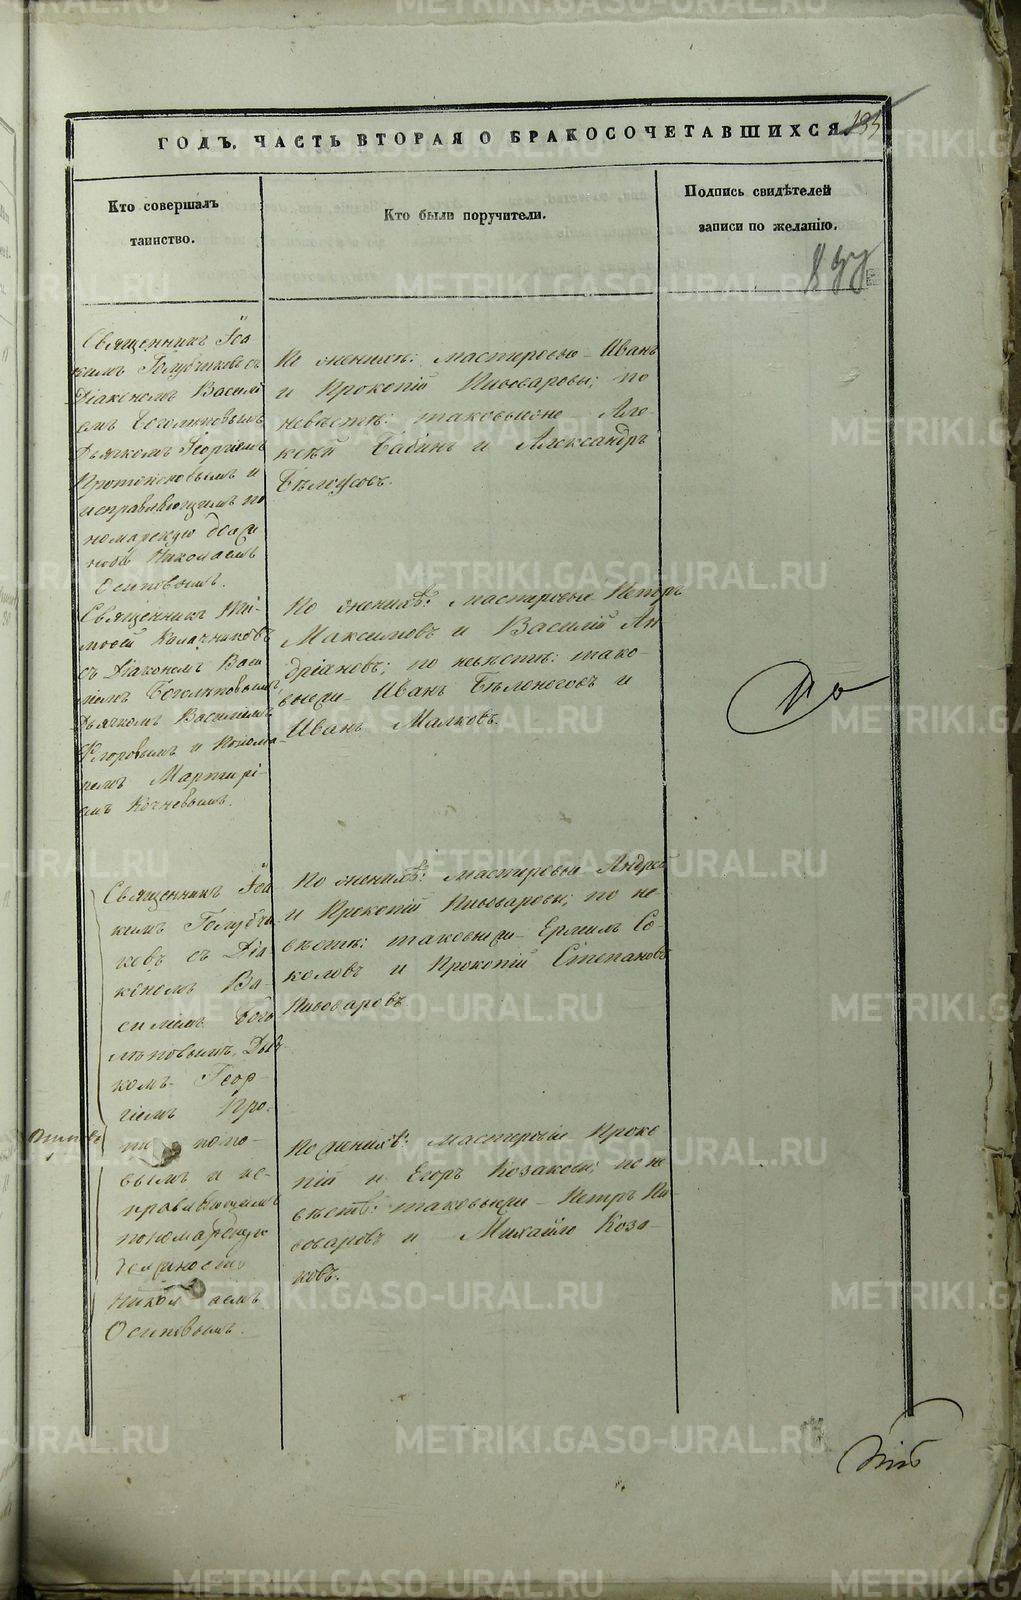 ГОДЪ. ЧАСТЬ ВТОРАЯ О БРАКОСОЧЕТАВШИХСЯ
195
Кто совершалъ
таинство.
Кто были поручители.
Подпись свидѣтелей
записи по желанію.
Священникъ Іоа
кимъ Голубчиковъ съ
Діакономъ Василі
емъ Боголеповымъ
Дьячкомъ Георгіемъ
исправляющимъ по
номарскую должн
Николаемъ
Осиповымъ.
По женихѣ: мастеровые Иванъ
и Прокопій Пивоваровы; по
невѣстѣ: таковыеже Але
ксѣй Бабинъ и Александръ
Бѣлоусовъ.
Священникъ Ти-
моѳей Калачниковъ
съ Діакономъ Васи
ліемъ Боголеповымъ,
Дьячкомъ Василіемъ
Флоровымъ и Понома
ремъ Мартирі-
емъ Кочневымъ.
По женихѣ: мастеровые Петръ
Максимовъ и Василій Ан
дріяновъ; по невѣстѣ: тако-
выеже Иванъ Бѣлоноговъ и
Иванъ Малковъ.
Священникъ Іоа
кимъ Голубчи
ковъ съ Діа
кономъ Ва
силіемъ Бого
леповымъ, Дьяч
комъ Геор-
гіемъ Про-
то попо-
вымъ и ис-
правляющимъ
пономарскую
должность
Николаемъ
Осиповымъ.
По женихѣ: мастеровые Андрей
и Прокопій Пивоваровы; по не
вѣстѣ: таковыеже Ермилъ Со
коловъ и Прокопій Степановъ
Пивоваровъ.
По женихѣ: мастеровые Проко
пій и Егоръ Козаковы; по не
вѣстѣ: таковыеже Петръ Пи
воваровъ и Михайло Козо-
ковъ.
По
METRIKI.GASO-URAL.RU